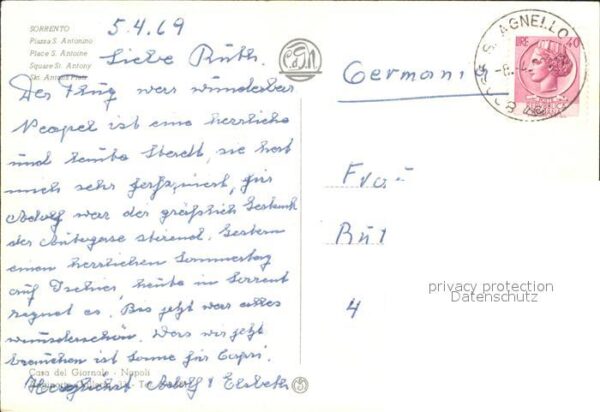 5.4.69
SORRENTO
Piazza S. Antonino
Place S. Antoine
Square St. Antony
Skt. Antons Platz
Liebe Ruth.
Der Flug war wunderbar
Neapel ist eine herrliche
und laute Stadt, sie hat
mich sehr
für
Adolf war der gräßlich Gestank
der Autogase störend. Gestern
einen herrlichen Sommertag
auf heute in Sorrent
regnet es. Bis jetzt war alles
wunderschön. Was wir jetzt
brauchen ist Sonne für Capri.
Casa del Giornale - Napoli
Herzlichst Adolf + Elsbeth
Germania
S. AGNELLO
LIRE 40
Frau
Rut
4
privacy protection
Datenschutz